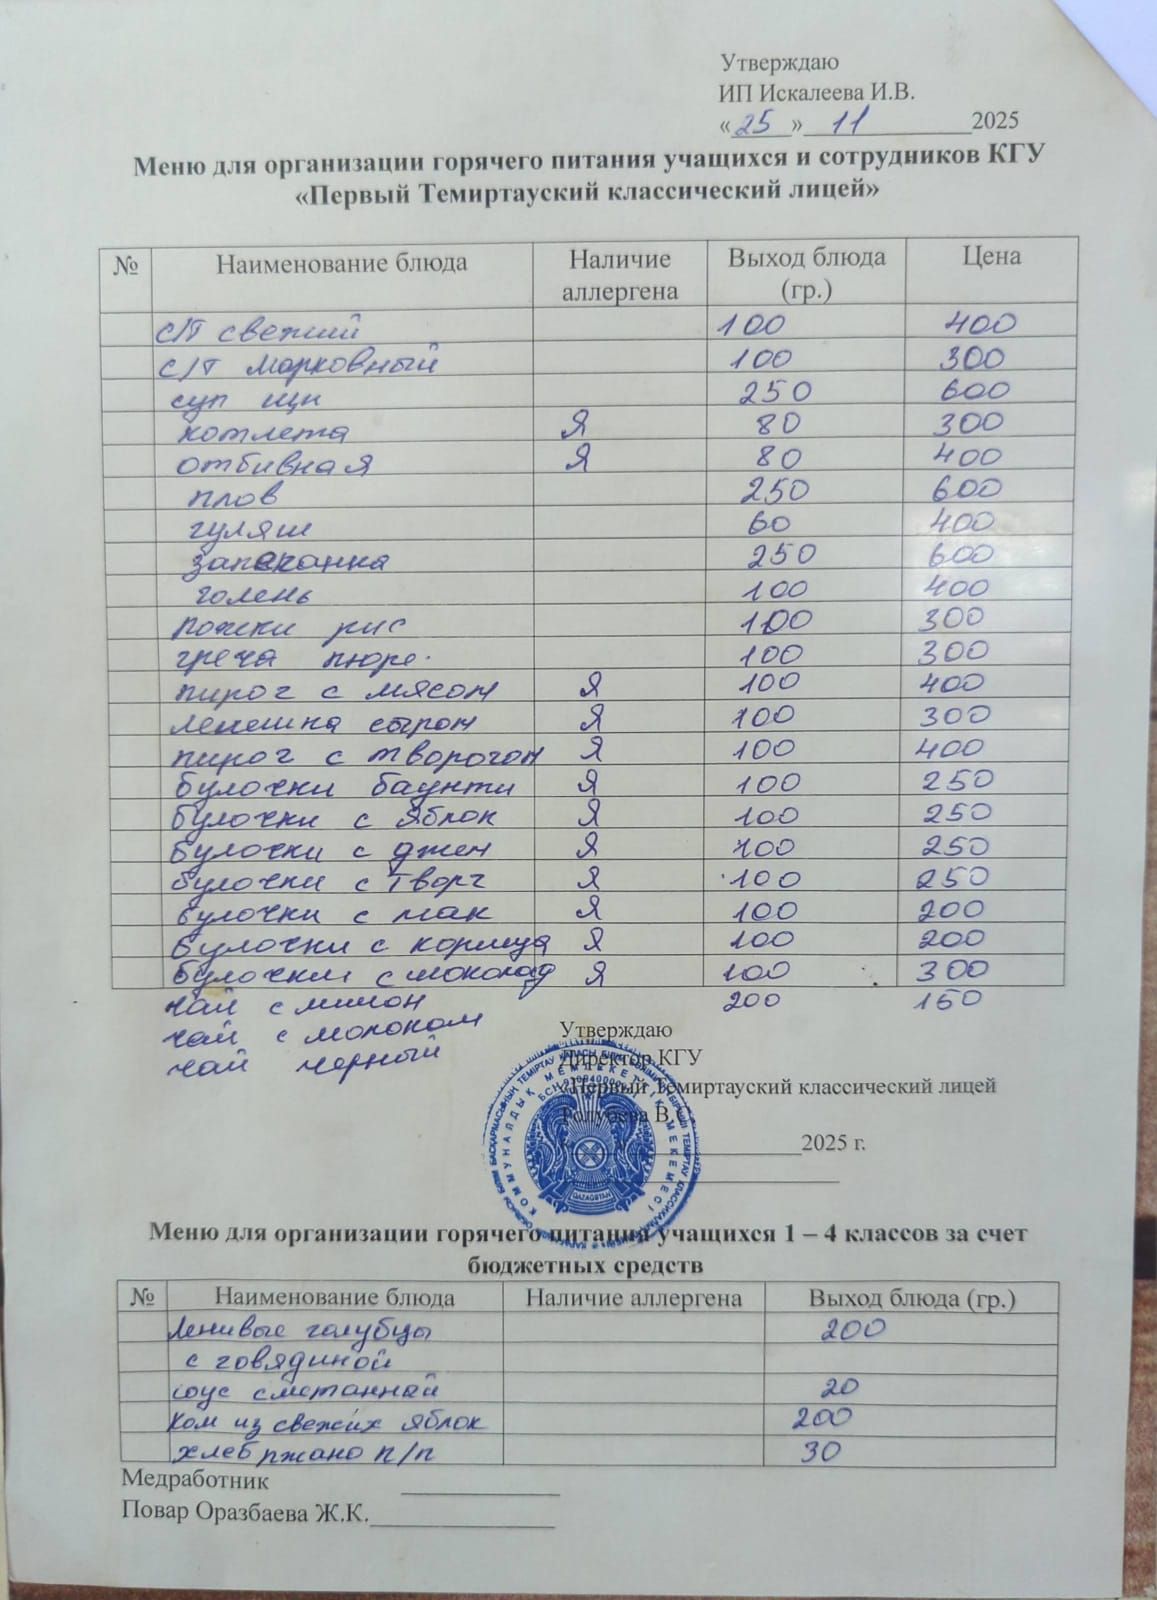 Утверждаю
ИП Искалеева И.В.
« 25 » 11 2025
Меню для организации горячего питания учащихся и сотрудников КГУ
«Первый Темиртауский классический лицей»
№ Наименование блюда Наличие аллергена Выход блюда (гр.) Цена
с/т свежий 100 400
с/т морковный 100 300
суп щи 250 600
котлета Я 80 300
отбивная Я 80 400
плов 250 600
гуляш 60 400
запеканка 250 600
голень 100 400
рожки рис 100 300
греча пюре. 100 300
пирог с мясом Я 100 400
лепешка сыром Я 100 300
пирог с творогом Я 100 400
булочки баунти Я 100 250
булочки с яблок Я 100 250
булочки с джем Я 100 250
булочки с творг Я 100 250
булочки с мак Я 100 200
булочки с корица Я 100 200
булочки с шоколад Я 100 300
чай с лимон 200 150
чай с молоком
чай черный
Утверждаю
Директор КГУ
«Первый Темиртауский классический лицей
Голубева В.
2025 г.
QAZAQSTAN
Меню для организации горячего питания учащихся 1 – 4 классов за счет
бюджетных средств
№ Наименование блюда Наличие аллергена Выход блюда (гр.)
Ленивые голубцы 200
с говядиной
соус сметанный 20
ком из свежих яблок 200
хлеб ржано п/п 30
Медработник
Повар Оразбаева Ж.К.